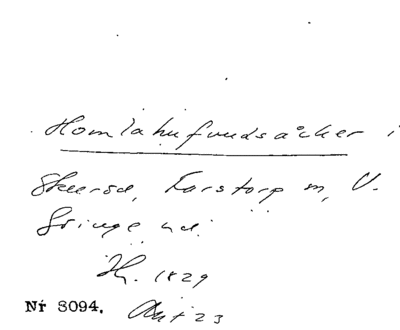 Homlahufvudsåcker i
Skeersd, Farstorp m, V.
Göinge hd.
H. 1829
Nr 3094. Akt 23